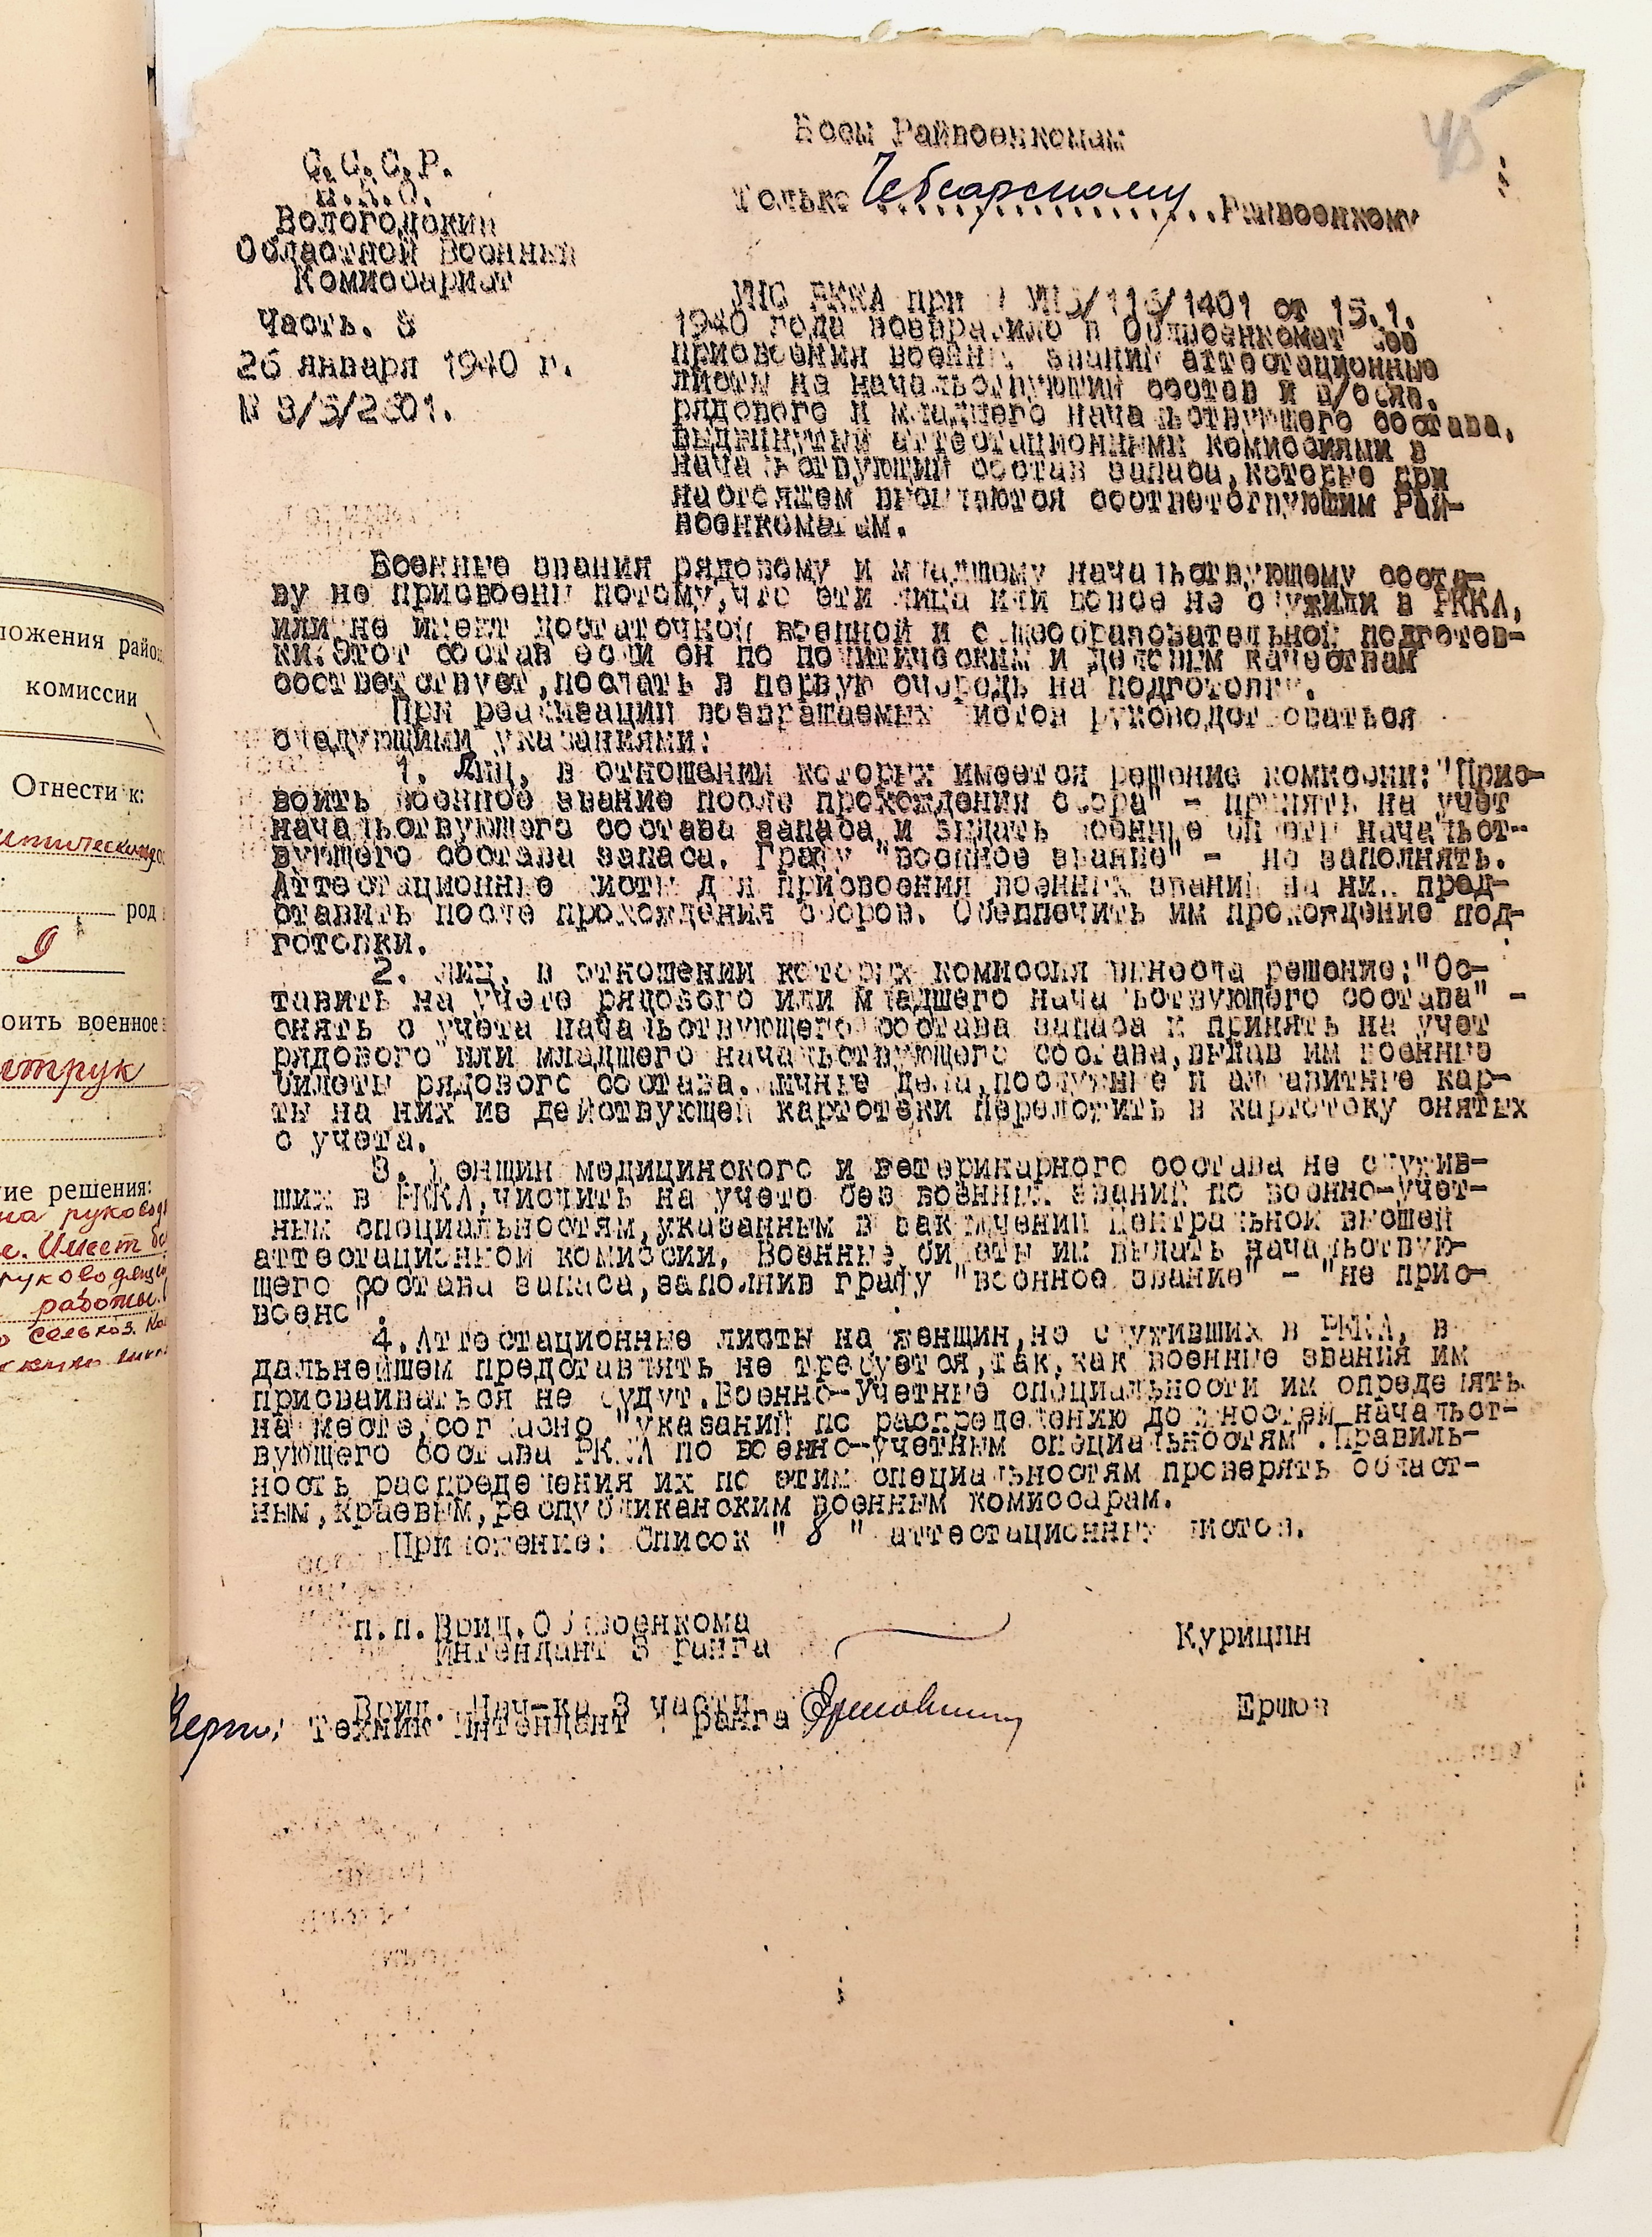 ложения район
комиссии
Отнести к:
род
9
оить военное з
итрук
ие решения:
на руковод
е. Имеет
руководящ
работы.
45
Всем Райвоенкомам
Только Чебсарскому Райвоенкому
С.С.С.Р.
Н.К.О.
Вологодский
Областной Военный
Комиссариат
Часть. 3
26 января 1940 г.
№ 3/5/2301.
УНС РККА при 115/1401 от 15.1.
1940 года возвратило в Облвоенкомат без
присвоения военных званий аттестационные
листы на начальствующий состав и в/обяз.
рядового и младшего начальствующего состава,
выдвинутый аттестационными комиссиями в
начальствующий состав запаса, которые при
настоящем возвращаются соответствующим Рай-
военкоматам.
Военные звания рядовому и младшому начальствующему соста-
ву не присвоены потому, что эти лица или вовсе не служили в РККА,
или не имеет достаточной военной и общеобразовательной подготов-
ки. Этот состав если он по политическим и деловым качествам
соответствует, послать в первую очередь на подготовку.
При реализации возвращаемых листов руководствоваться
следующими указаниями:
1. Лиц, в отношении которых имеется решение комиссии: "Прис-
воить военное звание после прохождения сбора" - принять на учет
начальствующего состава запаса и выдать военные билеты начальст-
вующего состава запаса. Графу "военное звание" - не заполнять.
Аттестационные листы для присвоения военных званий на них пред-
ставить после прохождения сборов. Обеспечить им прохождение под-
готовки.
2. Лиц, в отношении которых комиссия вынесла решение: "Ос-
тавить на учете рядового или младшего начальствующего состава" -
снять с учета начальствующего состава запаса и принять на учет
рядового или младшего начальствующего состава, выдав им военные
билеты рядового состава. Личные дела, послужные и алфавитные кар-
ты на них из действующей картотеки переложить в картотоку снятых
с учета.
3. Женщин медицинского и ветеринарного состава не служив-
ших в РККА, числить на учете без военных званий по военно-учет-
ным специальностям, указанным в заключении Центральной высшей
аттестационной комиссии. Военные билеты им выдать начальствую-
щего состава запаса, заполнив графу "военное звание" - "не прис-
воено".
4. Аттестационные листы на женщин, не служивших в РККА, в
дальнейшем представлять не требуется, так, как военные звания им
присваиваться не будут. Военно-Учетные специальности им определять
на месте, согласно "указаний по распределению должностей начальст-
вующего состава РККА по военно-учетным специальностям". Правиль-
ность распределения их по этим специальностям проверять област-
ным, краевым, республиканским военным комиссарам.
Приложение: Список " 8 " аттестационных листов.
п.п. Врид. Облвоенкома
Интендант 3 ранга Курицин
Врид. Нач-ка 3 части
Верно: Техник Интендант ранга Ершов